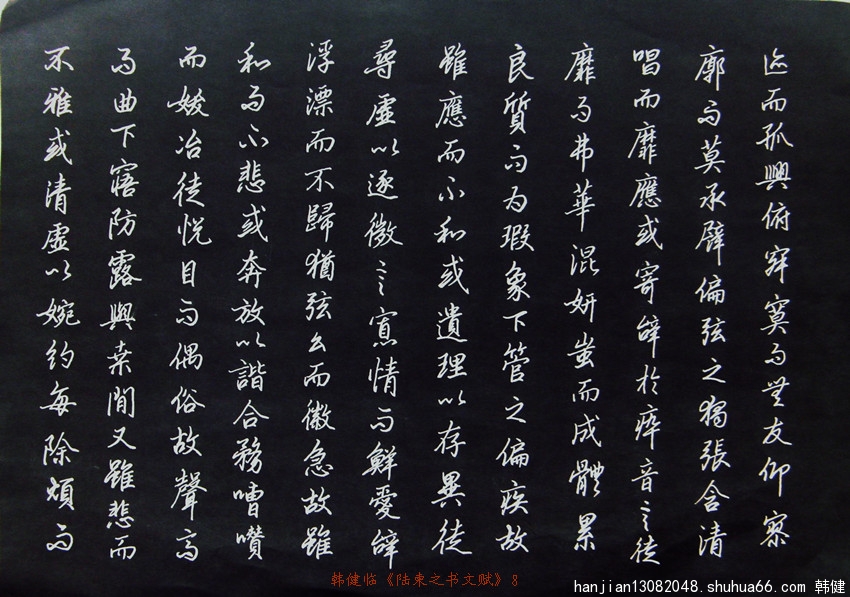 迹而孤興俯寂寞而無友仰寮
廓而莫承譬偏弦之獨張含清
唱而靡應或寄辭於瘁音言徒
靡而弗華混妍蚩而成體累
良質而為瑕象下管之偏疾故
雖應而不和或遺理以存異徒
尋虛以逐微言寡情而鮮愛辭
浮漂而不歸猶弦幺而徽急故雖
和而不悲或奔放以諧合務嘈囋
而妖冶徒悅目而偶俗故聲高
而曲下寤防露與桑間又雖悲而
不雅或清虛以婉約每除煩而
韩健临《陆柬之书文赋》8
hanjian13082048.shuhua66.com 韩健